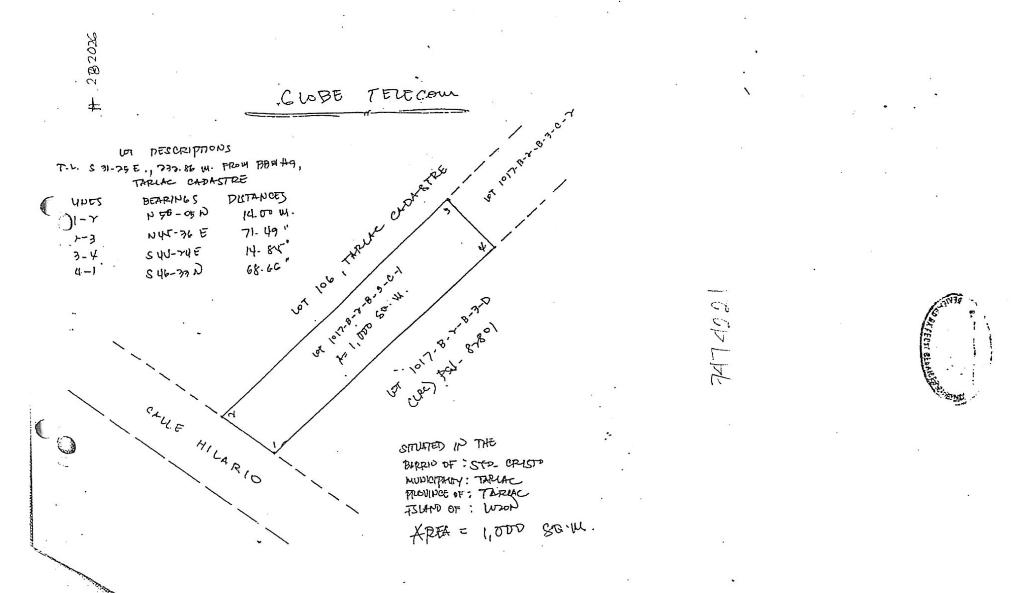 # 282026
GLOBE TELECOM
LOT DESCRIPTIONS
T.L. S 31-25 E., 732.86 M. FROM BBM #9,
TARLAC CADASTRE
LINES BEARINGS DISTANCES
1-2 N 50-05 W 14.00 M.
2-3 N 45-36 E 71.49 "
3-4 S 45-24 E 14.85 "
4-1 S 46-33 W 68.66 "
LOT 106, TARLAC CADASTRE
LOT 1017-B-2-B-3-C-2
3
4
LOT 1017-B-2-B-3-C-1
A= 1,000 SQ.M.
LOT 1017-B-2-B-3-D
(LRC) PSD-82801
2
1
CALLE HILARIO
SITUATED IN THE
BARRIO OF : STO. CRISTO
MUNICIPALITY : TARLAC
PROVINCE OF : TARLAC
ISLAND OF : LUZON
AREA = 1,000 SQ.M.